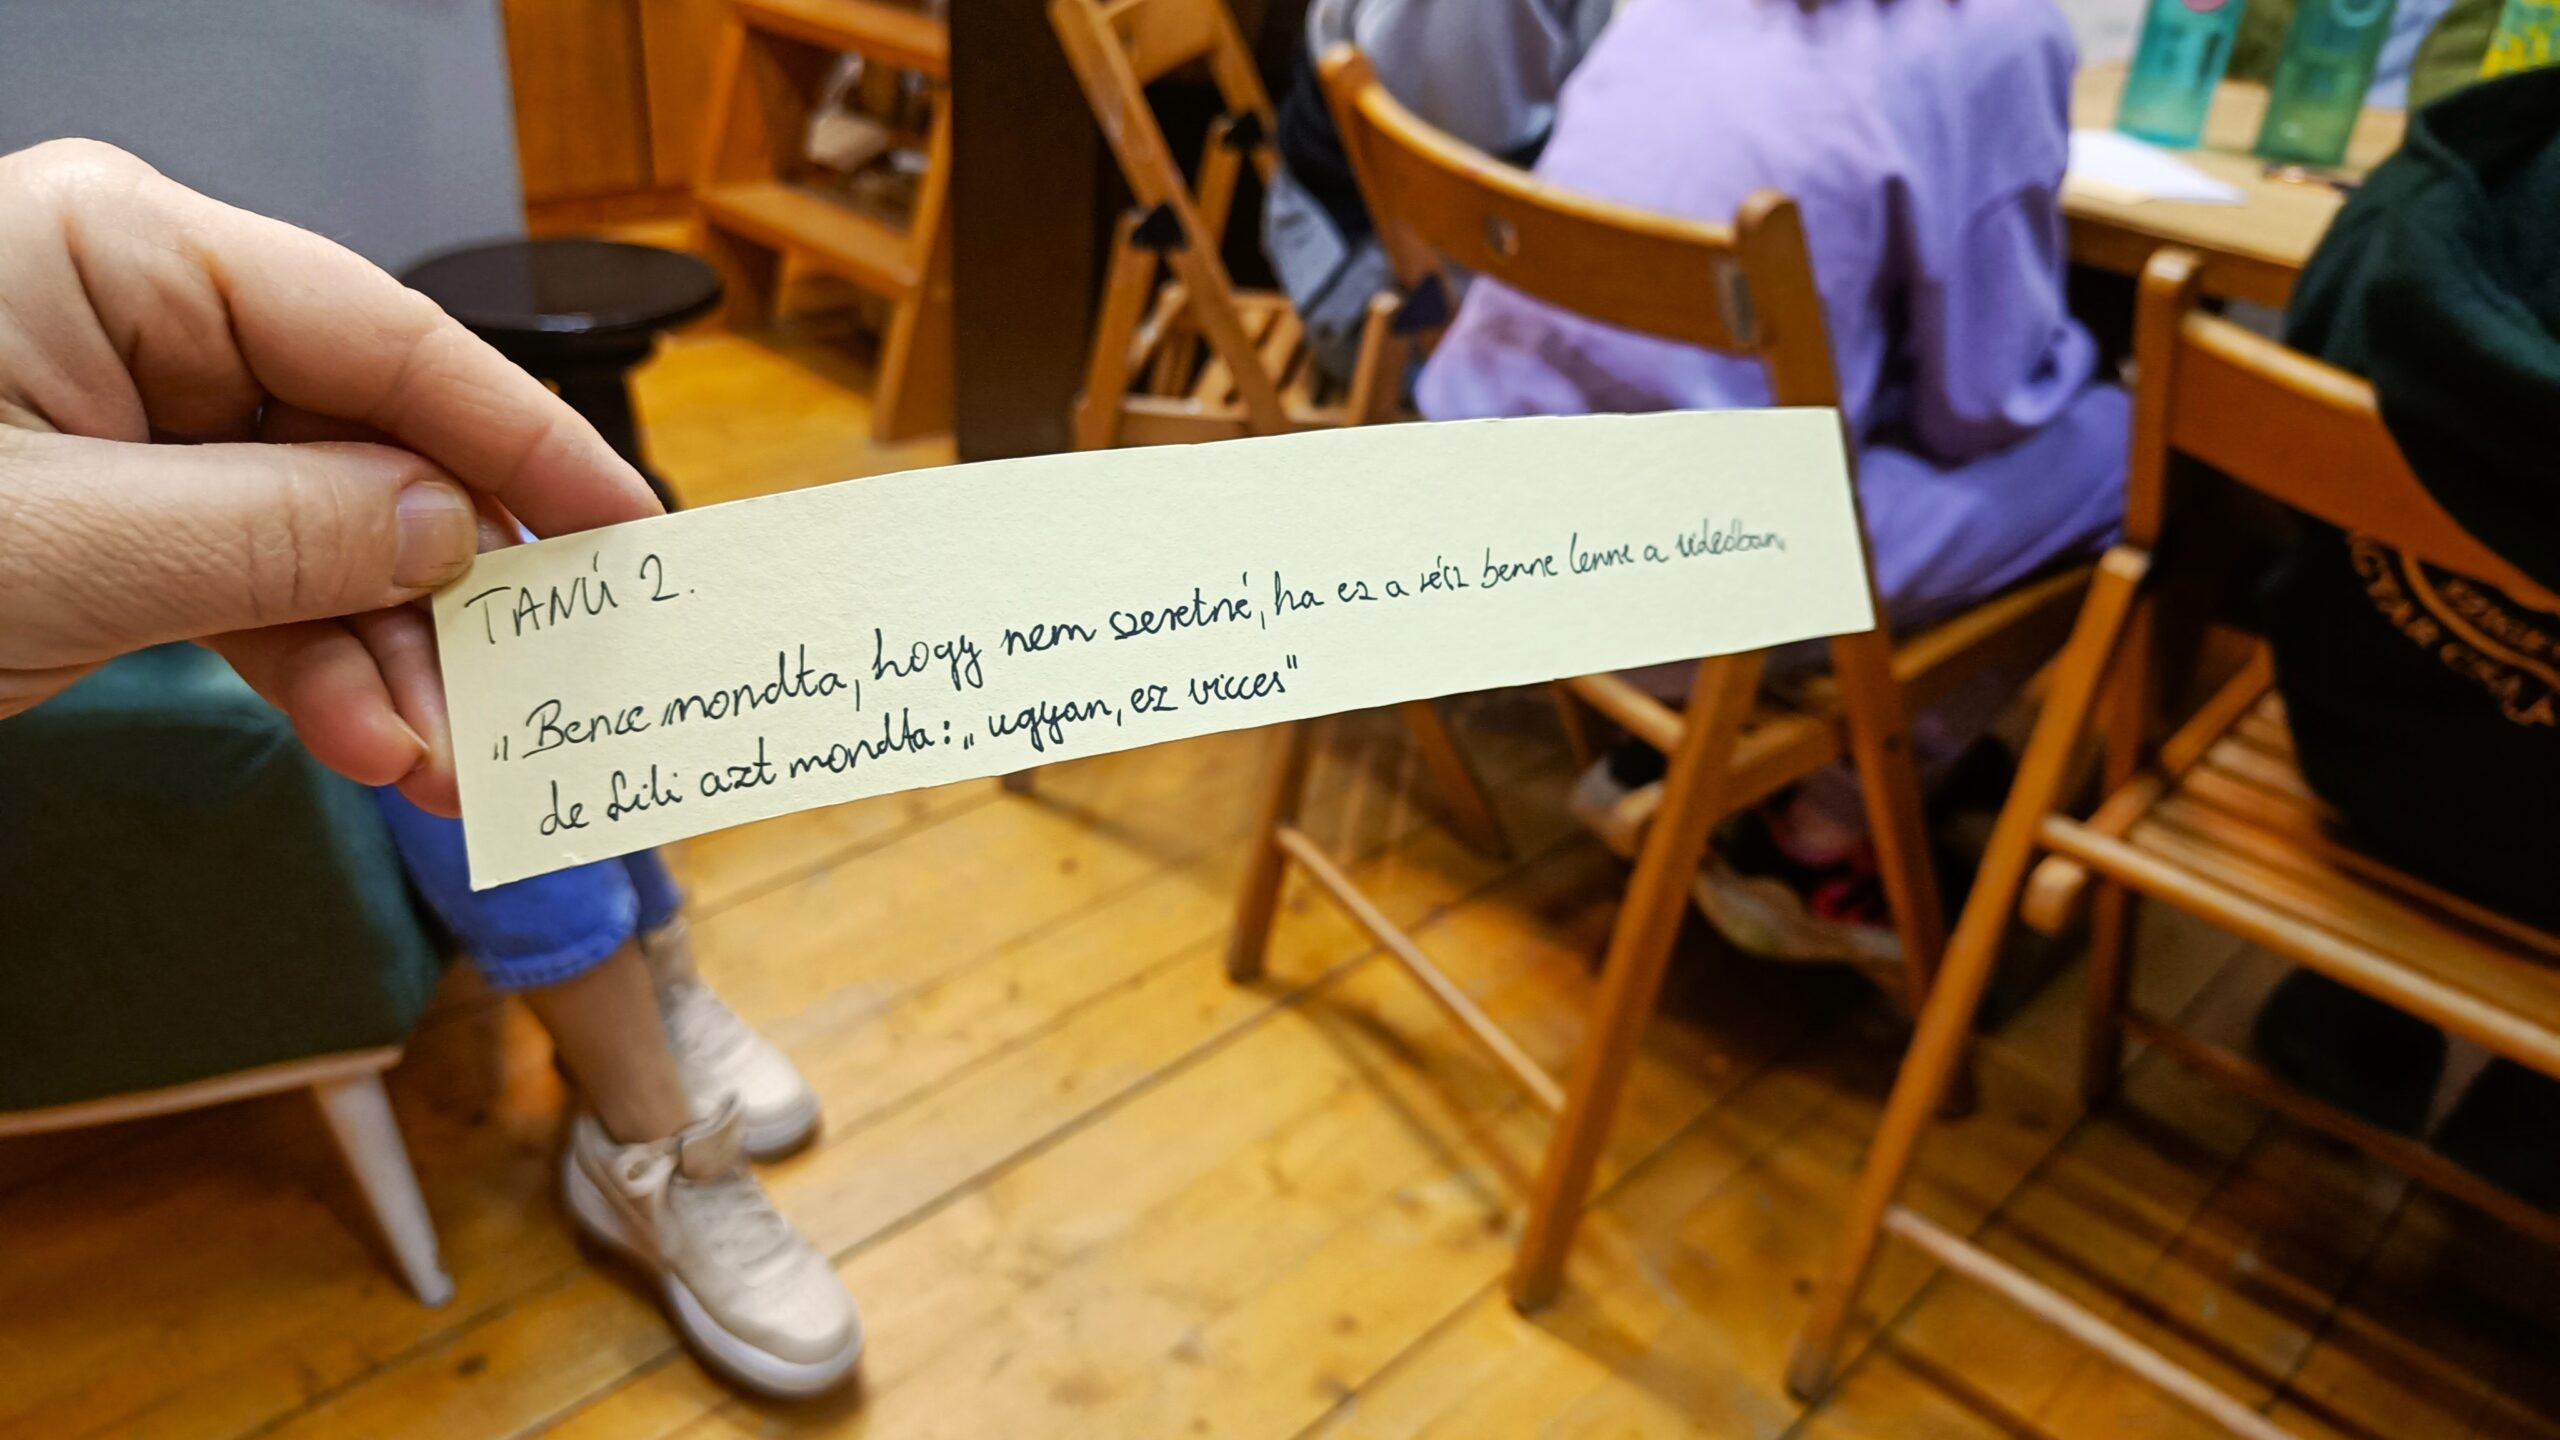 TANÚ 2.
„Bence mondta, hogy nem szeretné, ha ez a rész benne lenne a videóban,
de Lili azt mondta: „ugyan, ez vicces"